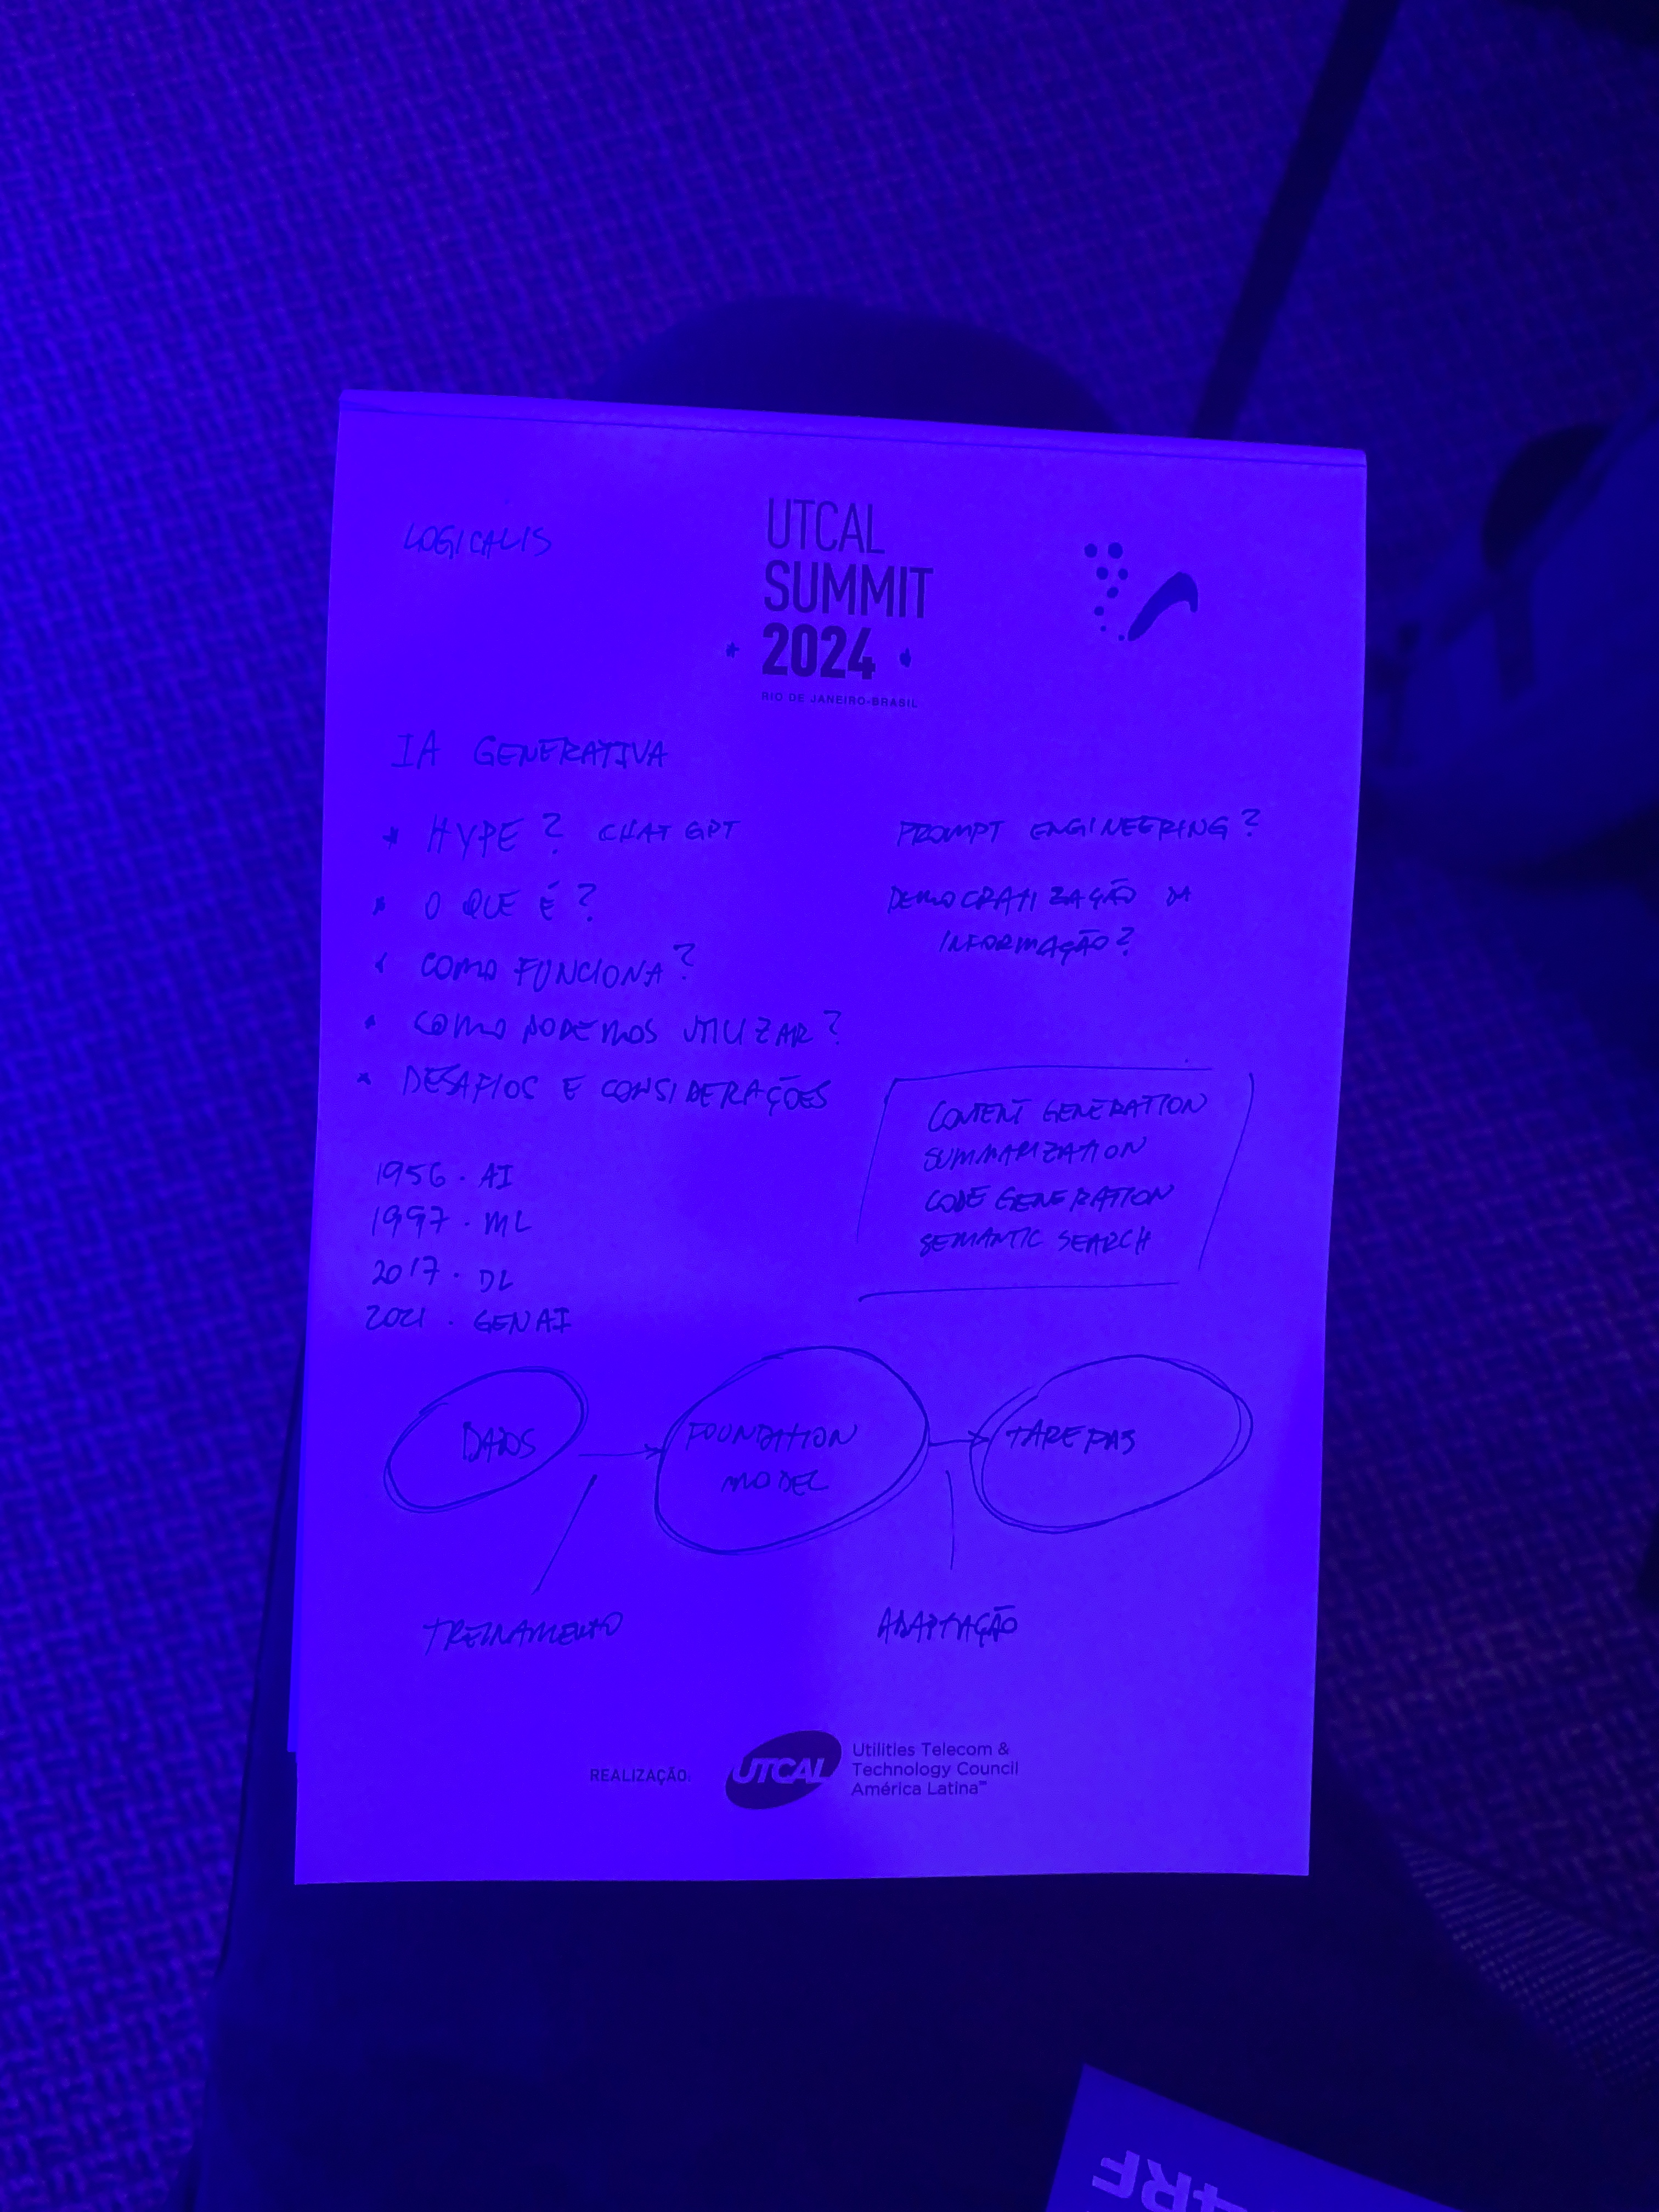 LOGICALIS
UTCAL
SUMMIT
2024
RIO DE JANEIRO-BRASIL
IA GENERATIVA
* HYPE? CHAT GPT
* O QUE É?
* COMO FUNCIONA?
* COMO PODEMOS UTILIZAR?
* DESAFIOS E CONSIDERAÇÕES
PROMPT ENGINEERING?
DEMOCRATIZAÇÃO DA
INFORMAÇÃO?
CONTENT GENERATION
SUMMARIZATION
CODE GENERATION
SEMANTIC SEARCH
1956 . AI
1997 . ML
2017 . DL
2021 . GENAI
DADOS
FOUNDATION
MODEL
TAREFAS
TREINAMENTO
ADAPTAÇÃO
REALIZAÇÃO:
UTCAL
Utilities Telecom &
Technology Council
América Latina™